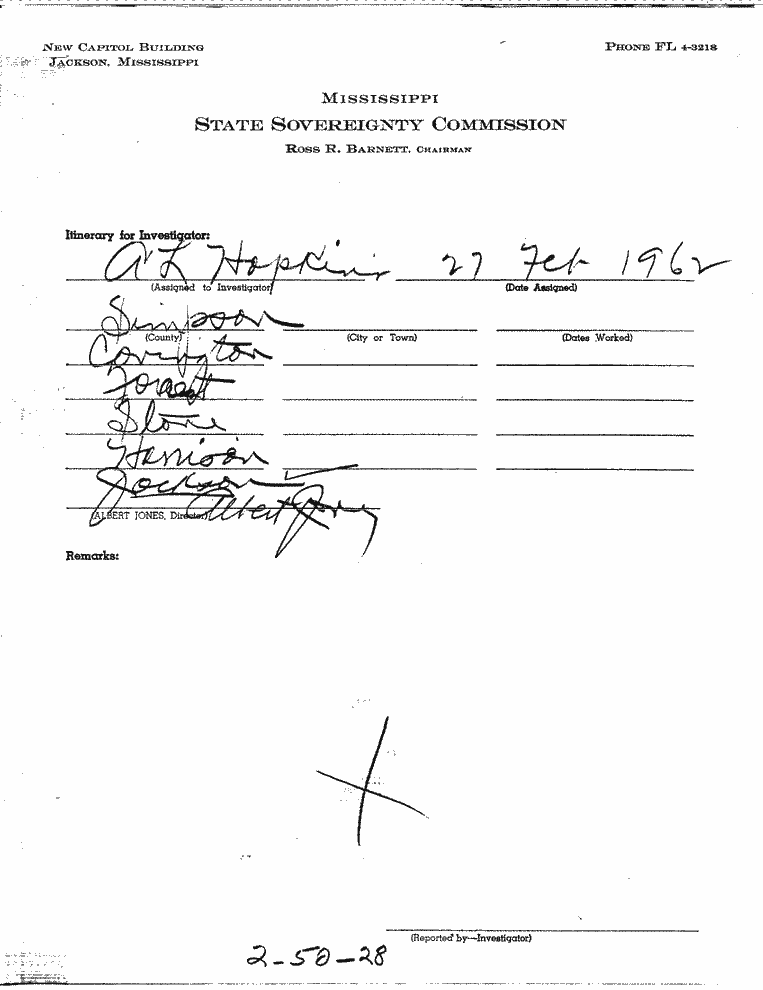 NEW CAPITOL BUILDING
JACKSON, MISSISSIPPI
PHONE FL 4-3218
MISSISSIPPI
STATE SOVEREIGNTY COMMISSION
ROSS R. BARNETT, CHAIRMAN
Itinerary for Investigator:
A L Hopkins 27 Feb 1962
(Assigned to Investigator) (Date Assigned)
Simpson
(County) (City or Town) (Dates Worked)
Covington
Forrest
Stone
Harrison
Jackson
(ALBERT JONES, Director) Albert Jones
Remarks:
(Reported by—Investigator)
2-50-28